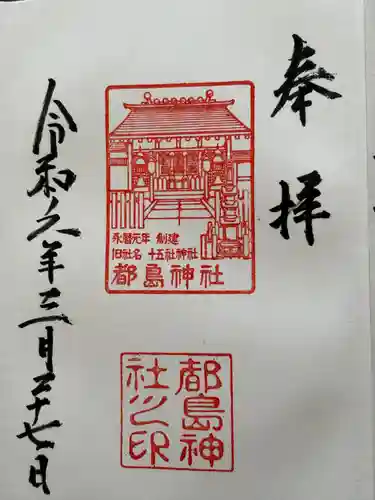 奉拝
永暦元年 創建
旧社名 十五社神社
都島神社
都島神
社之印
令和六年十二月二十七日